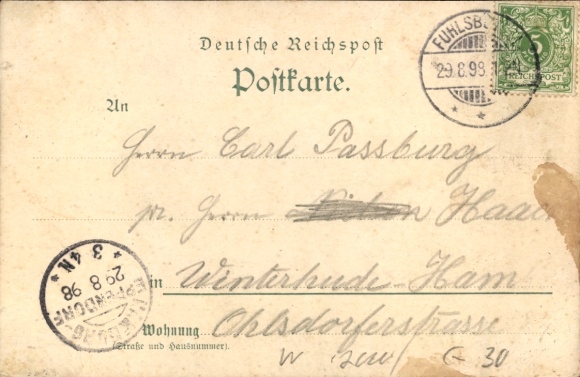 Deutsche Reichspost
Postkarte.
FUHLSB
29.8.98.
5
REICHSPOST
An
Herrn Carl Passburg
pr. Herrn Haa
in Winterhude-Ham
* 3 4 N *
29.8.98
Wohnung Ohlsdorferstrasse
(Straße und Hausnummer)
30